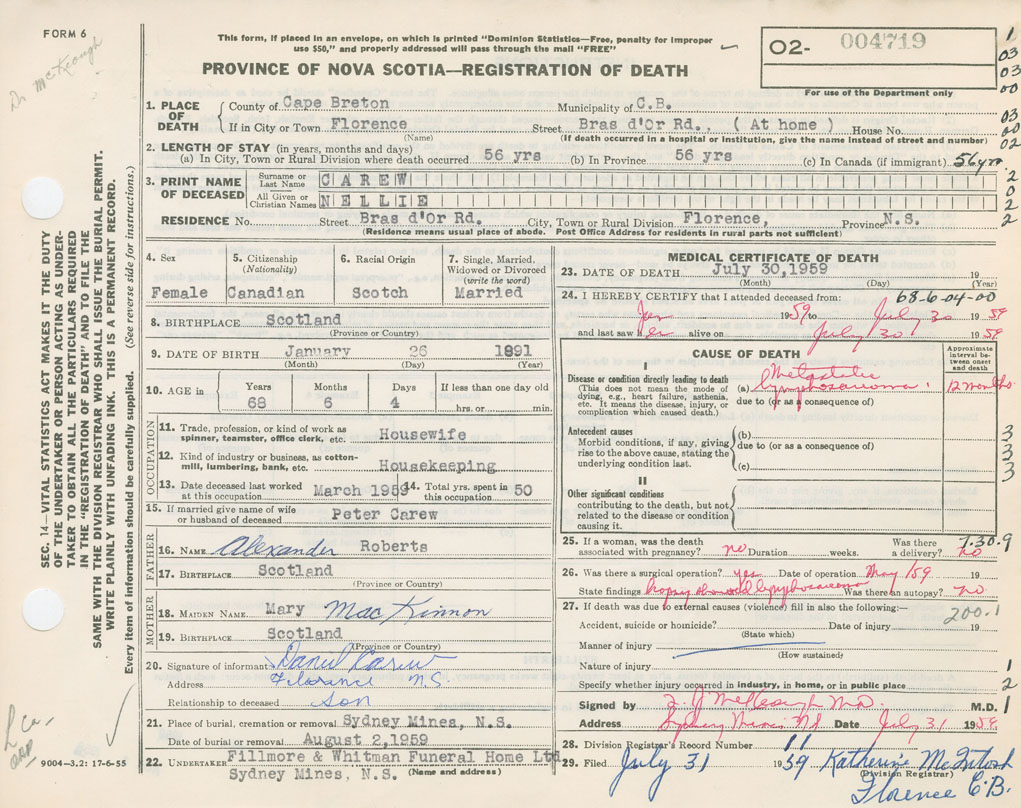 FORM 6
Dr. McKeough
This form, if placed in an envelope, on which is printed "Dominion Statistics—Free, penalty for improper
use $50," and properly addressed will pass through the mail "FREE"
PROVINCE OF NOVA SCOTIA—REGISTRATION OF DEATH
O2- 004719
For use of the Department only
1
03
03
00
03
00
02
2
0
2
2
1. PLACE OF DEATH
County of Cape Breton Municipality of C.B.
If in City or Town Florence Street Bras d'Or Rd., ( At home ) House No.
(Name) (If death occurred in a hospital or institution, give the name instead of street and number)
2. LENGTH OF STAY (in years, months and days)
(a) In City, Town or Rural Division where death occurred 56 yrs (b) In Province 56 yrs (c) In Canada (if immigrant) 56 yrs
3. PRINT NAME OF DECEASED
Surname or Last Name CAREW
All Given or Christian Names NELLIE
RESIDENCE No. Street Bras d'Or Rd. City, Town or Rural Division Florence, Province N.S.
(Residence means usual place of abode. Post Office Address for residents in rural parts not sufficient)
4. Sex
Female
5. Citizenship
(Nationality)
Canadian
6. Racial Origin
Scotch
7. Single, Married,
Widowed or Divorced
(write the word)
Married
8. BIRTHPLACE Scotland
(Province or Country)
9. DATE OF BIRTH January 26 1891
(Month) (Day) (Year)
10. AGE in
Years Months Days If less than one day old
68 6 4 hrs. or min.
OCCUPATION
11. Trade, profession, or kind of work as
spinner, teamster, office clerk, etc. Housewife
12. Kind of industry or business, as cotton-
mill, lumbering, bank, etc. Housekeeping
13. Date deceased last worked
at this occupation March 1959
14. Total yrs. spent in
this occupation 50
15. If married give name of wife
or husband of deceased Peter Carew
FATHER
16. NAME Alexander Roberts
17. BIRTHPLACE Scotland
(Province or Country)
MOTHER
18. MAIDEN NAME Mary MacKinnon
19. BIRTHPLACE Scotland
(Province or Country)
20. Signature of informant Daniel Carew
Address Florence N.S.
Relationship to deceased son
21. Place of burial, cremation or removal Sydney Mines, N.S.
Date of burial or removal August 2, 1959
22. UNDERTAKER Fillmore & Whitman Funeral Home Ltd
Sydney Mines, N.S. (Name and address)
MEDICAL CERTIFICATE OF DEATH
23. DATE OF DEATH July 30, 1959 19
(Month) (Day) (Year)
24. I HEREBY CERTIFY that I attended deceased from: 68-6-04-00
Jan 1959 to July 30 1959
and last saw her alive on July 30 1959
CAUSE OF DEATH
Approximate interval between onset and death
I
Disease or condition directly leading to death
(This does not mean the mode of
dying, e.g., heart failure, asthenia,
etc. It means the disease, injury, or
complication which caused death.)
(a) Metastatic
lymphosarcoma. 12 months
due to (or as a consequence of)
Antecedent causes
Morbid conditions, if any, giving
rise to the above cause, stating the
underlying condition last.
(b)
due to (or as a consequence of)
(c)
3
3
3
3
II
Other significant conditions
contributing to the death, but not
related to the disease or condition
causing it.
25. If a woman, was the death
associated with pregnancy? no Duration weeks. Was there a delivery? no
7.30.9
26. Was there a surgical operation? yes Date of operation May /59 19
State findings biopsy showed lymphosarcoma Was there an autopsy? no
27. If death was due to external causes (violence) fill in also the following:— 200.1
Accident, suicide or homicide? Date of injury 19
(State which)
Manner of injury
(How sustained)
Nature of injury 1
Specify whether injury occurred in industry, in home, or in public place 2
Signed by McKeough M.D. M.D. 1
Address Sydney Mines NS Date July 31 1959
28. Division Registrar's Record Number 11
29. Filed July 31 1959 Katherine McIntosh
(Division Registrar)
Florence C.B.
SEC. 14—VITAL STATISTICS ACT MAKES IT THE DUTY
OF THE UNDERTAKER OR PERSON ACTING AS UNDER-
TAKER TO OBTAIN ALL THE PARTICULARS REQUIRED
IN THE "REGISTRATION OF DEATH" AND TO FILE THE
SAME WITH THE DIVISION REGISTRAR WHO SHALL ISSUE THE BURIAL PERMIT.
WRITE PLAINLY WITH UNFADING INK. THIS IS A PERMANENT RECORD.
Every item of information should be carefully supplied. (See reverse side for instructions.)
9004-3.2: 17-6-55